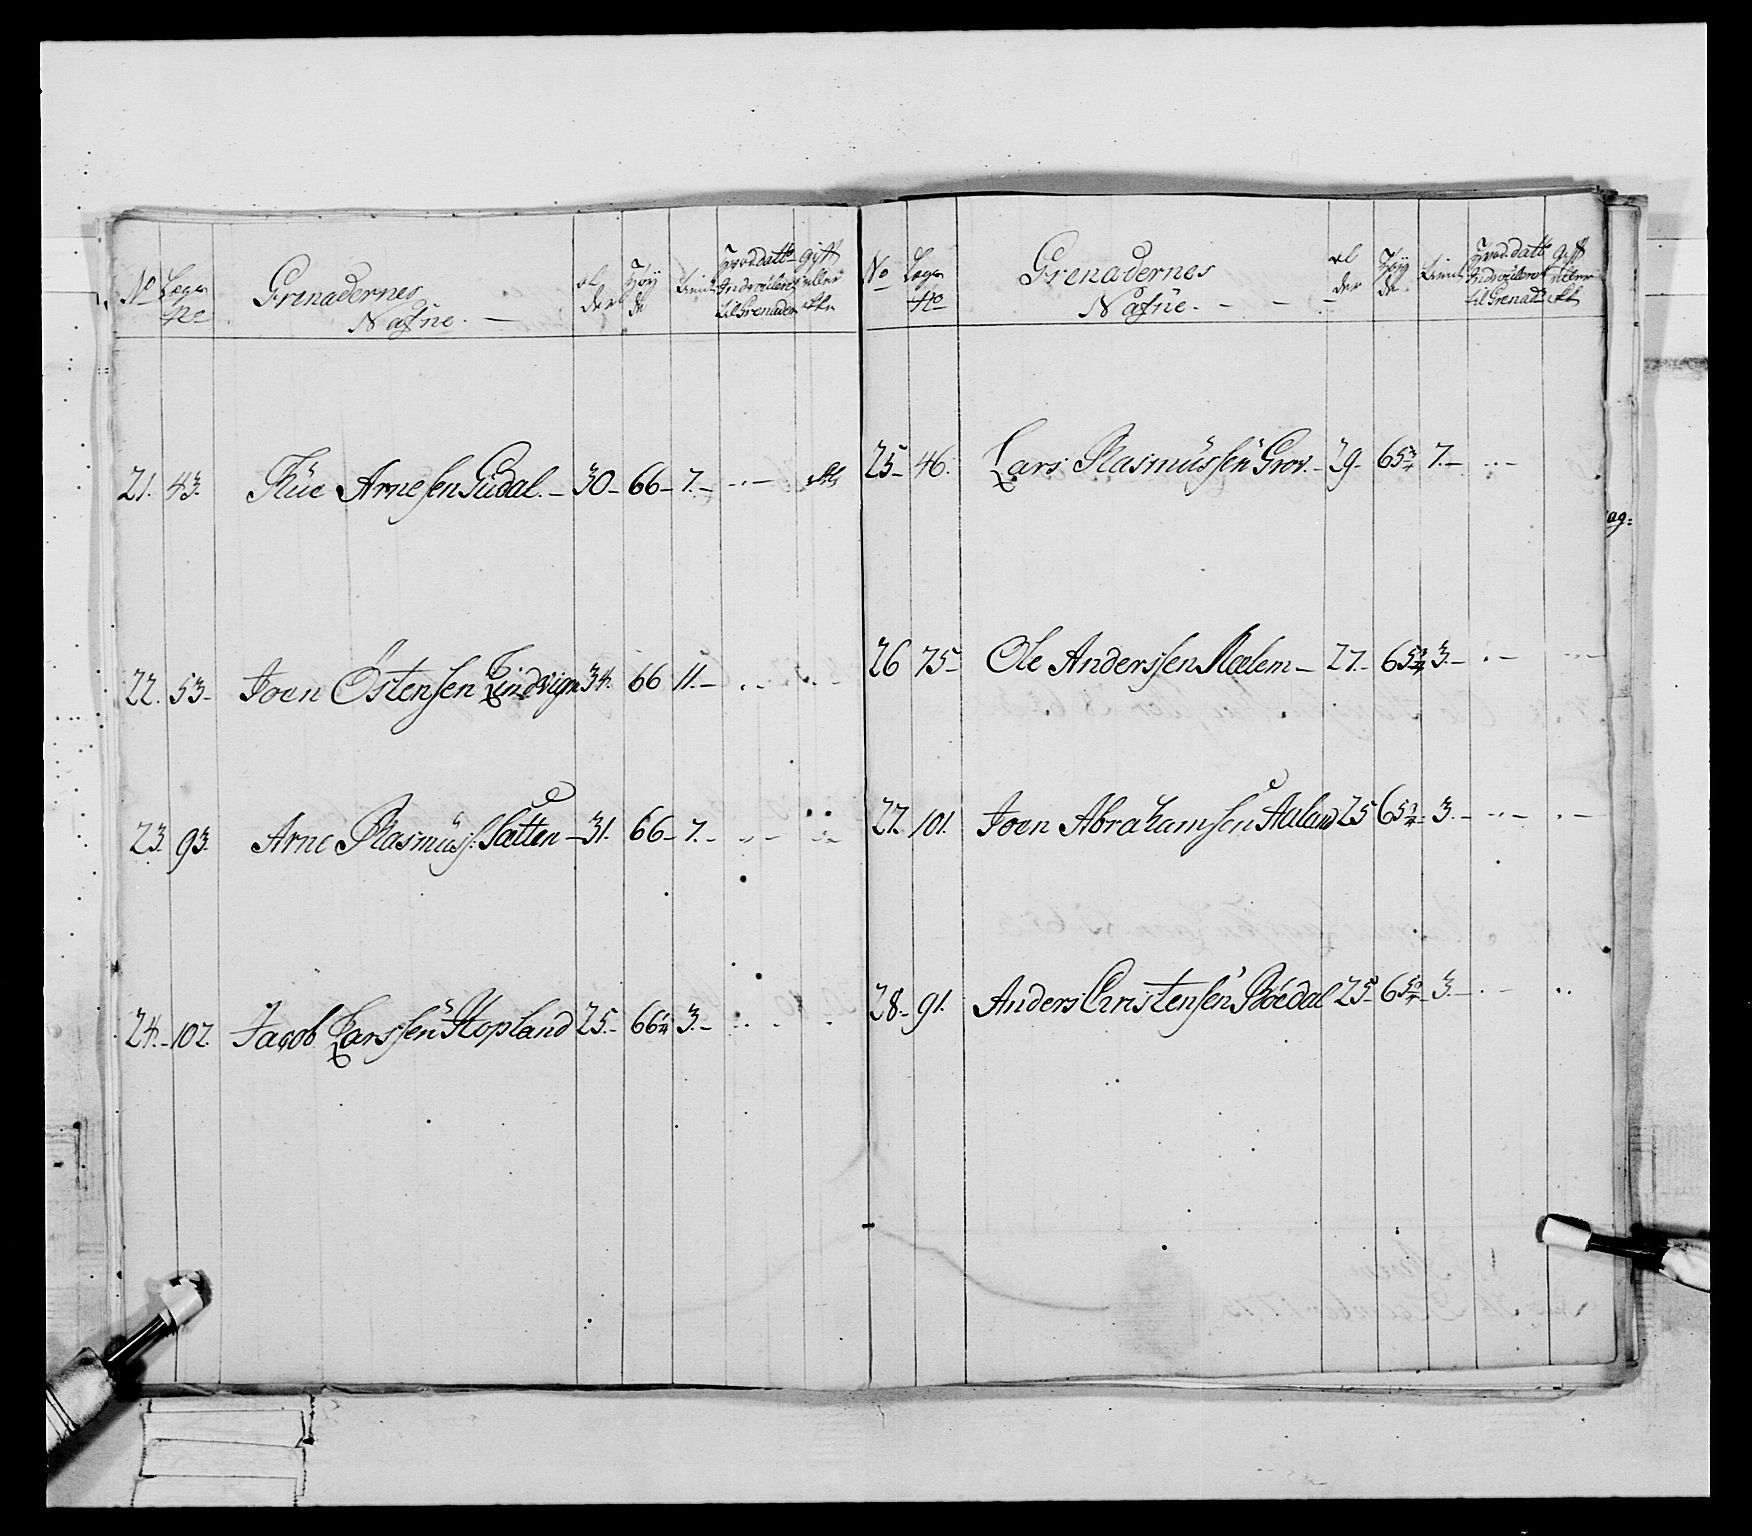 No Legs No Grenadernes Nafne. Alder Høyde Tient Hvad datto Indroulleret til Grenader gift eller ikke
21. 43. Thue Arnesen Gudal. 30 66 7. ikke
22. 53. Joen Østensen Lindvigen 34. 66 11.
23. 93. Arne Rasmuss: Sætten 31. 66 7.
24. 102. Jacob Larssen Hopland 25. 66 1/4 3.
No Legs No Grenadernes Nafne. Alder Høyde Tient Hvad datto Indroulleret til Grenad: gift eller ikke
25 46. Lars Rasmussen Grov. 29. 65 3/4 7.
26 75 Ole Anderssen Mælem 27. 65 3/4 3.
27. 101. Joen Abrahamsen Aaland 25 65 3/4 3.
28. 91. Anders Christensen Bøedal 25 65 3/4 3.
ag: